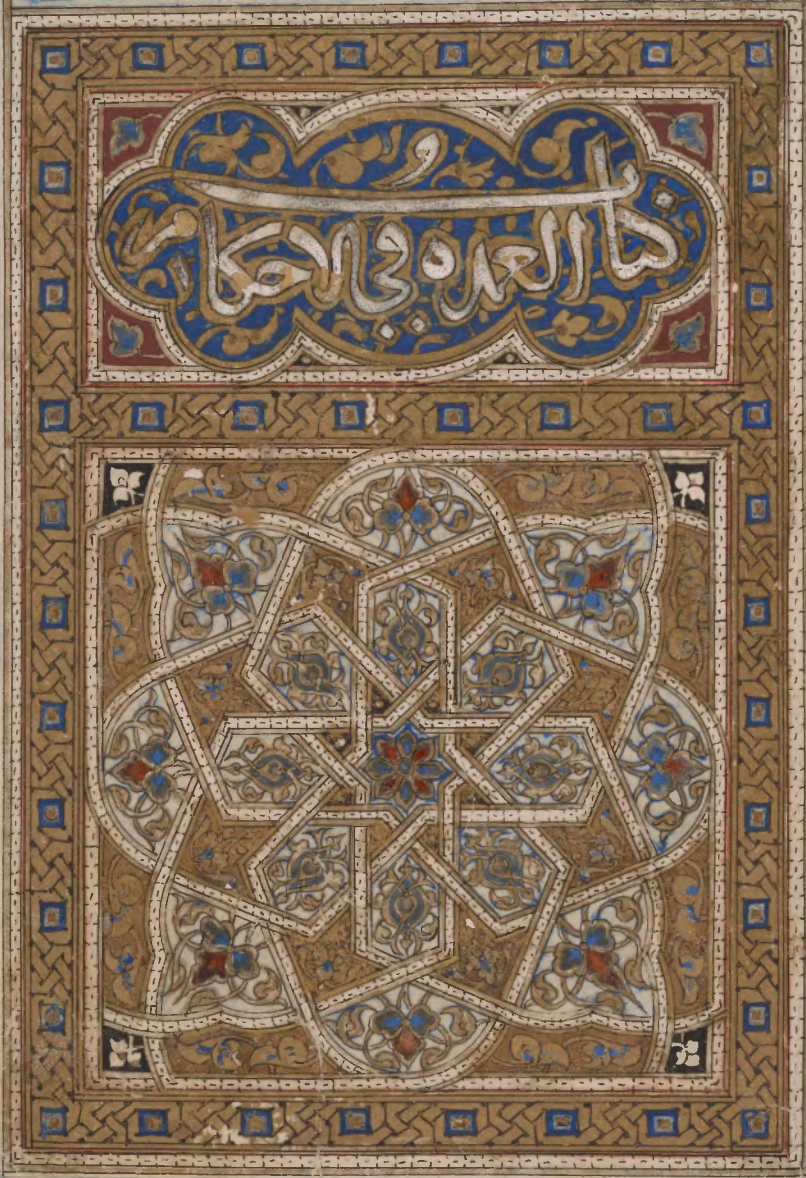 كتاب العمده في الاحكام